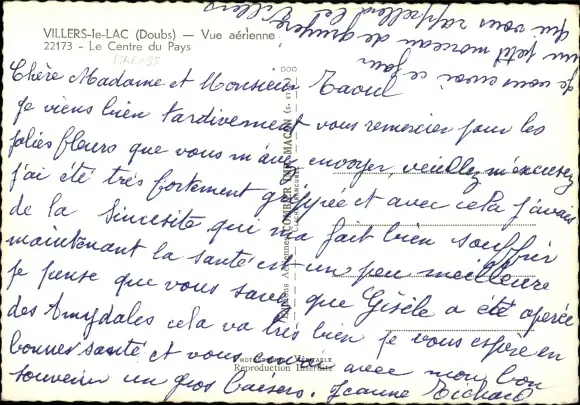 VILLERS-le-LAC (Doubs) — Vue aérienne
22173 - Le Centre du Pays
Chère Madame et Monsieur Raoul
Je viens bien tardivement vous remercier pour les
jolies fleurs que vous m'avez envoyer, veuillez m'excusez
j'ai été très fortement grippée et avec cela j'avais
de la Sincesite qui ma fait bien souffrir
maintenant la santé est un peu meilleure
je pense que vous savez que Gisèle a été opérée
des Amygdales cela va très bien je vous espère en
bonne santé, et vous avec mon bon
souvenir un gros baisers. Jeanne Richard
Je vous envoi ce jour
un petit morceau de gruyère
qui vous rappellera Villers
Editions Aériennes COMBIER IMP. MACON (S.-et-L.)
Reproduction Interdite